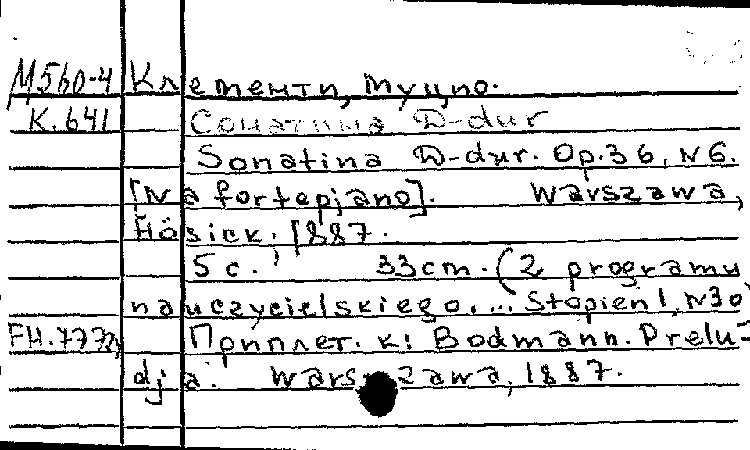 М560-4 Клементи, Муцио.
К.641 Сонатина D-dur
Sonatina D-dur. Op.36, N6.
[Na fortepjano]. Warszawa,
Hösick, 1887.
5 с. 33cm. (2 programu
nauczycielskiego.... Stopien I, N30)
FH.777 Приплет. к: Bodmann. Prelu-
dja. Warszawa, 1887.